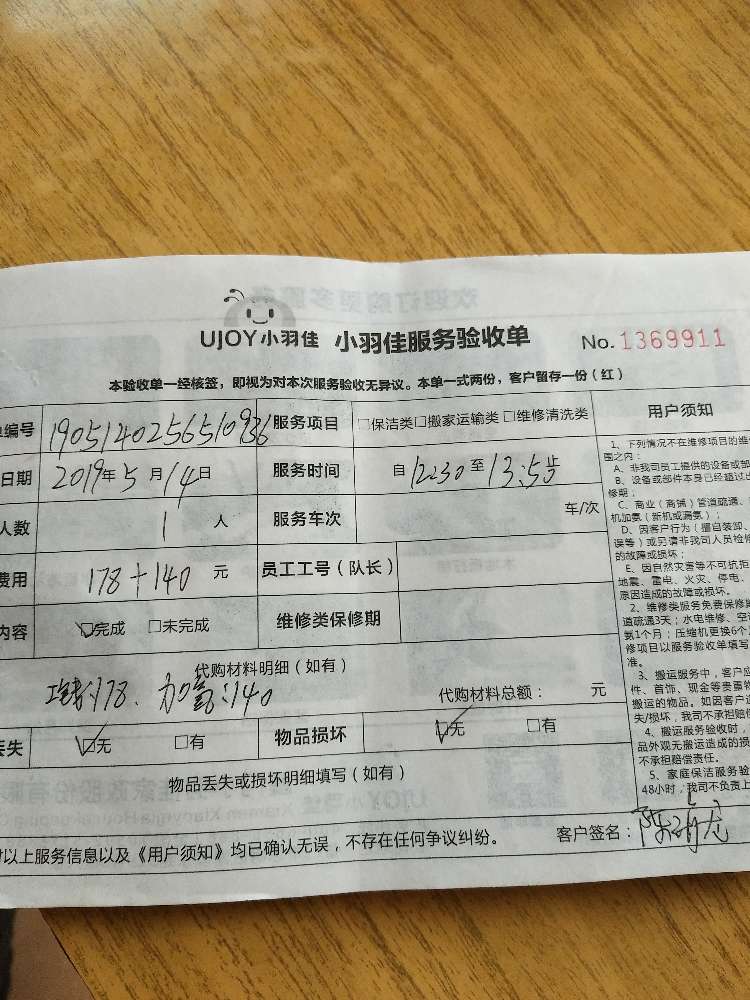 UJOY小羽佳 小羽佳服务验收单 No.1369911
本验收单一经核签，即视为对本次服务验收无异议。本单一式两份，客户留存一份（红）
单编号 1905140256510936 服务项目 □保洁类□搬家运输类□维修清洗类 用户须知
日期 2019年5月14日 服务时间 自12:30至13:55止
人数 1人 服务车次 车/次
费用 178+140元 员工工号（队长）
内容 ☑完成 □未完成 维修类保修期
代购材料明细（如有）
178. 加氨:140 代购材料总额： 元
丢失 ☑无 □有 物品损坏 ☑无 □有
物品丢失或损坏明细填写（如有）
以上服务信息以及《用户须知》均已确认无误，不存在任何争议纠纷。 客户签名：
1、下列情况不在维修项目的维
围之内：
A、非我司员工提供的设备或部
B、设备或部件本身已经超过出
修期；
C、商业（商铺）管道疏通、
机加氨（新机或漏氨）；
D、因客户行为（擅自装卸、
误等）或另请非我司人员检修
的故障或损坏；
E、因自然灾害等不可抗拒
地震、雷电、火灾、停电、
原因造成的故障或损坏。
2、维修类服务免费保修期
道疏通3天；水电维修、空
氨1个月；压缩机更换6个
修项目以服务验收单填写
准。
3、搬运服务中，客户应
件、首饰、现金等贵重物
搬运的物品。如因客户
失/损坏，我司不承担赔
4、搬运服务验收时，
品外观无搬运造成的损
不承担赔偿责任。
5、家庭保洁服务验
48小时，我司不负责上